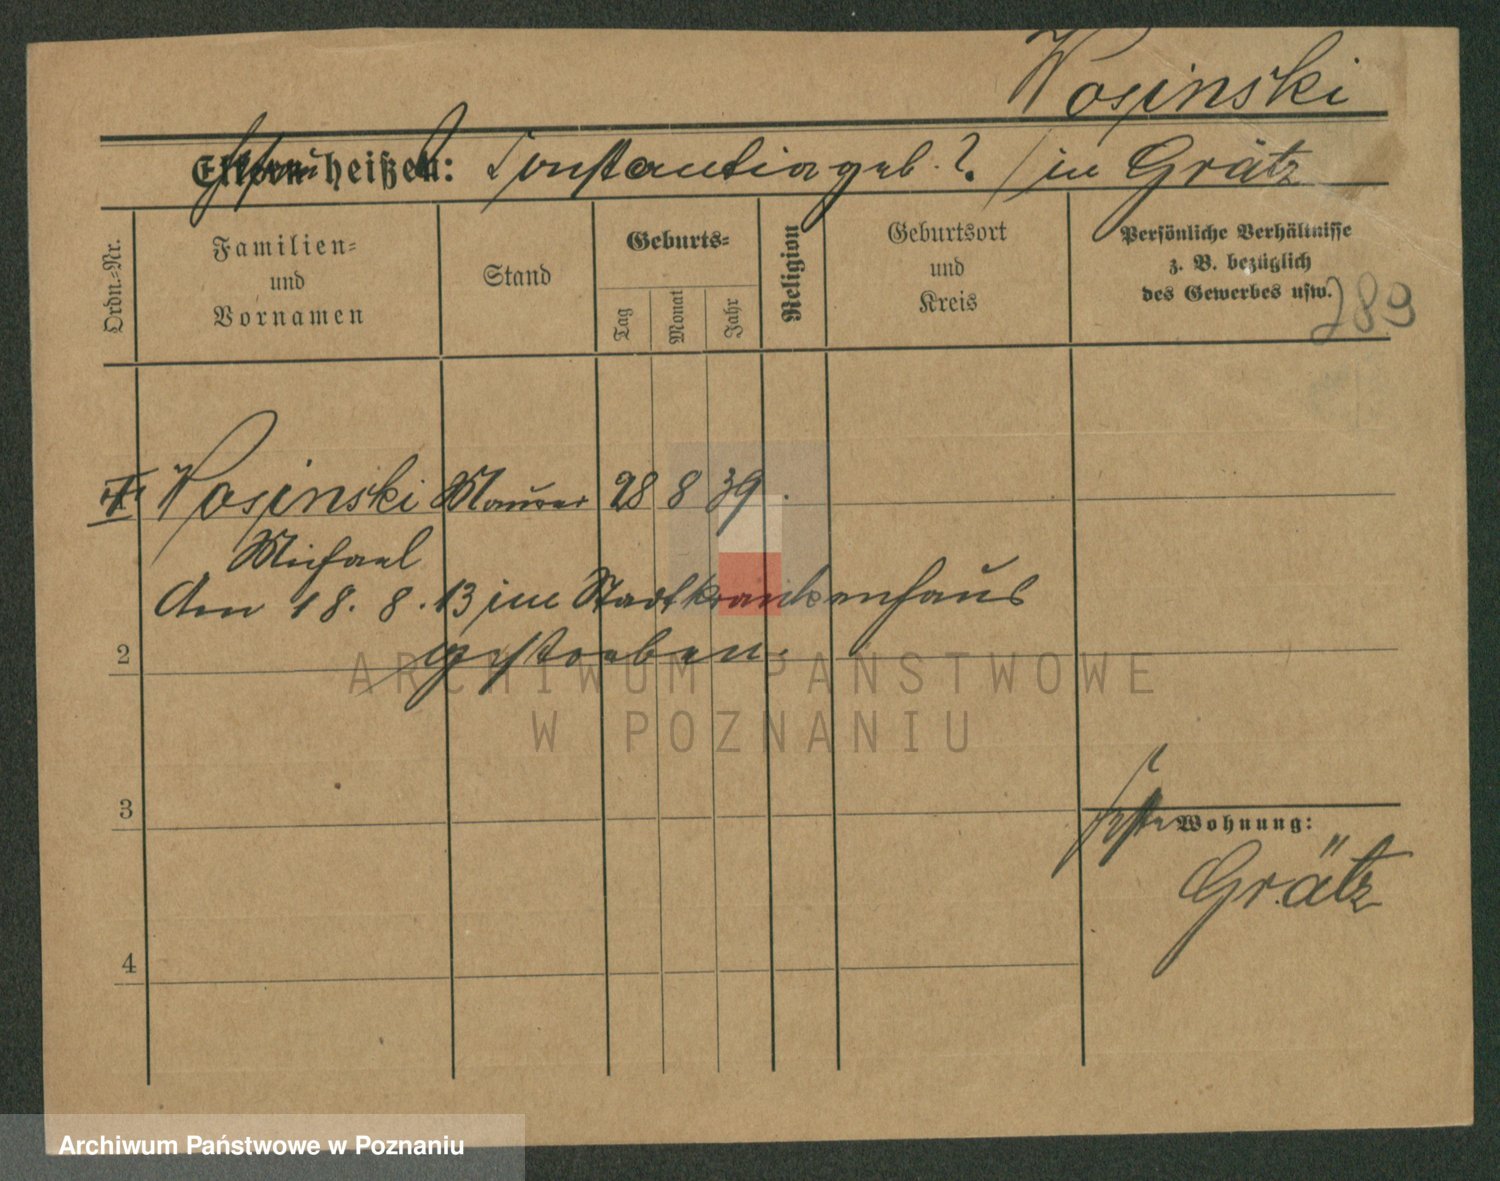 Wosinski
Eltern heißen: Ehefrau Constantia geb. ? / in Grätz
Ordn.-Nr.
Familien-
und
Vornamen
Stand
Geburts-
Tag
Monat
Jahr
Religion
Geburtsort
und
Kreis
Persönliche Verhältnisse
z. B. bezüglich
des Gewerbes usw.
289
1 Wosinski Maurer 28 8 39.
Michael
Am 18. 8. 13 im Stadtkrankenhaus
gestorben.
2
3
4
letzte Wohnung:
Grätz
ARCHIWUM PAŃSTWOWE
W POZNANIU
Archiwum Państwowe w Poznaniu